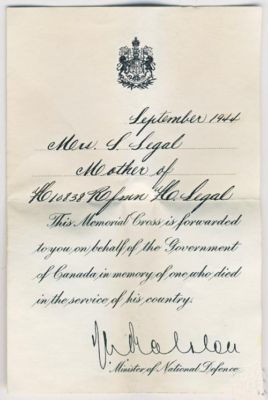 September 1944
Mrs. S. Segal
Mother of
H10838 Rfmn H. Segal
This Memorial Cross is forwarded
to you on behalf of the Government
of Canada in memory of one who died
in the service of his country.
Ralston
Minister of National Defence.